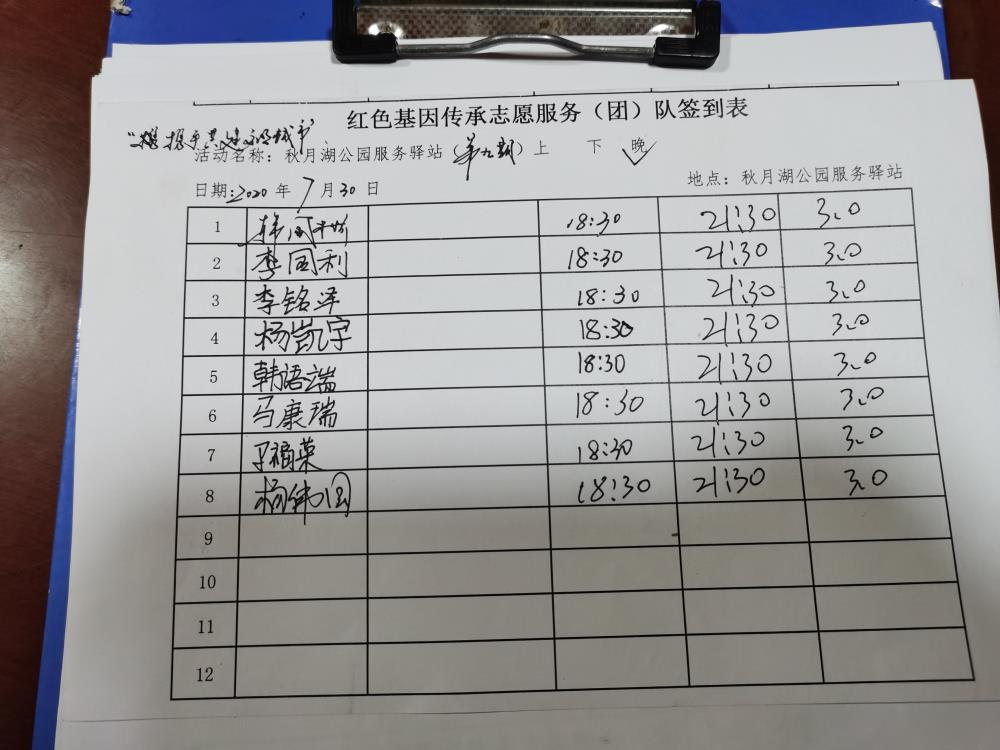 红色基因传承志愿服务（团）队签到表
"携手共建文明城市"
活动名称：秋月湖公园服务驿站（第九期）上 下 晚√
日期：2020年7月30日 地点：秋月湖公园服务驿站
1 韩国 18:30 21:30 3.0
2 李国利 18:30 21:30 3.0
3 李铭泽 18:30 21:30 3.0
4 杨凯宇 18:30 21:30 3.0
5 韩语端 18:30 21:30 3.0
6 马康瑞 18:30 21:30 3.0
7 福荣 18:30 21:30 3.0
8 杨伟国 18:30 21:30 3.0
9
10
11
12